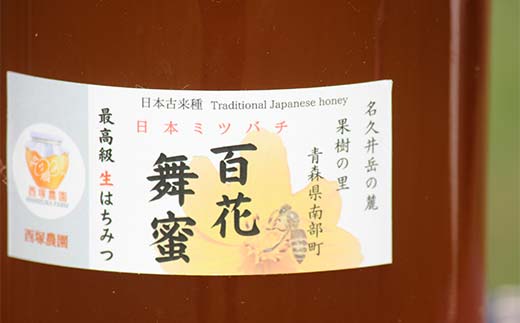 日本古来種 Traditional Japanese honey
日本ミツバチ
名久井岳の麓
果樹の里
青森県南部町
百花
舞蜜
最高級生はちみつ
西塚農園
西塚農園